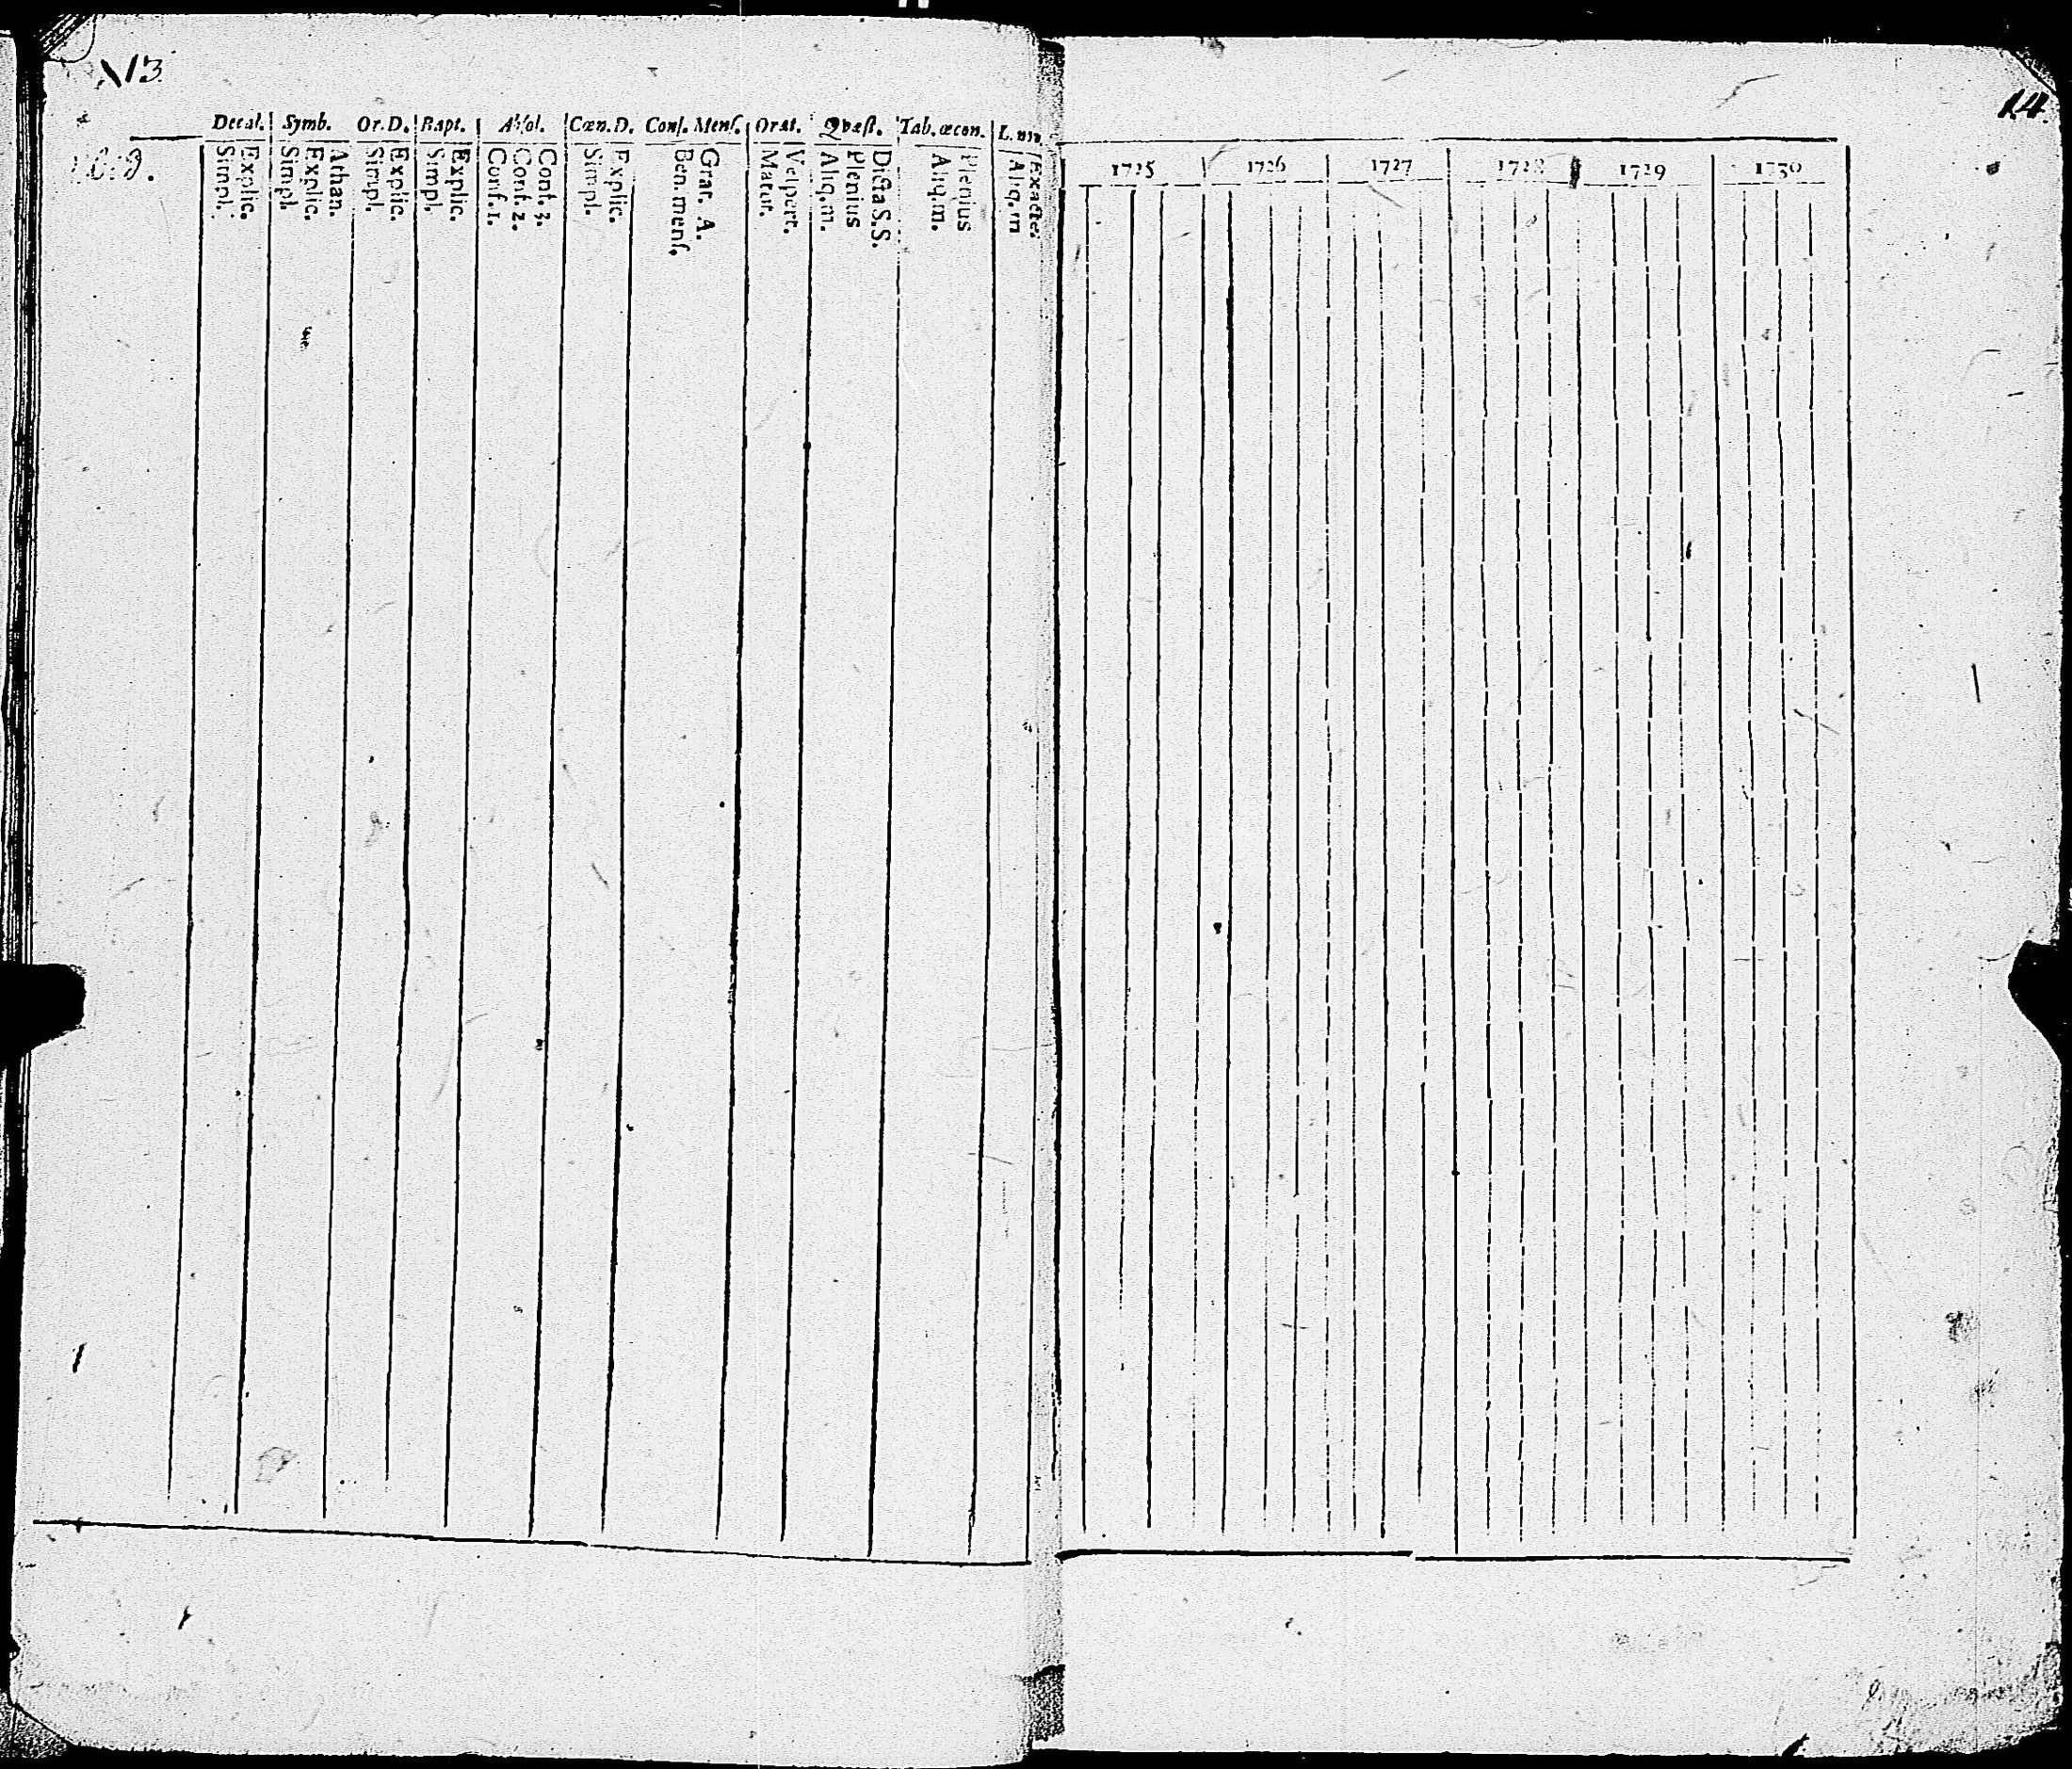 13
14
Decal. Symb. Or. D. Bapt. Absol. Cœn. D. Conf. Menſ. Orat. Qvæſt. Tab. œcon.
Simpl. Explic. Simpl. Explic. Athan. Simpl. Explic. Simpl. Explic. Conf. 1. Conf. 2. Conf. 3. Simpl. Explic. Ben. menſ. Grat. A. Matut. Veſpert. Aliq. m. Plenius Dicta S. S. Aliq. m. Plenius Aliq. m
1725 1726 1727 1728 1729 1730